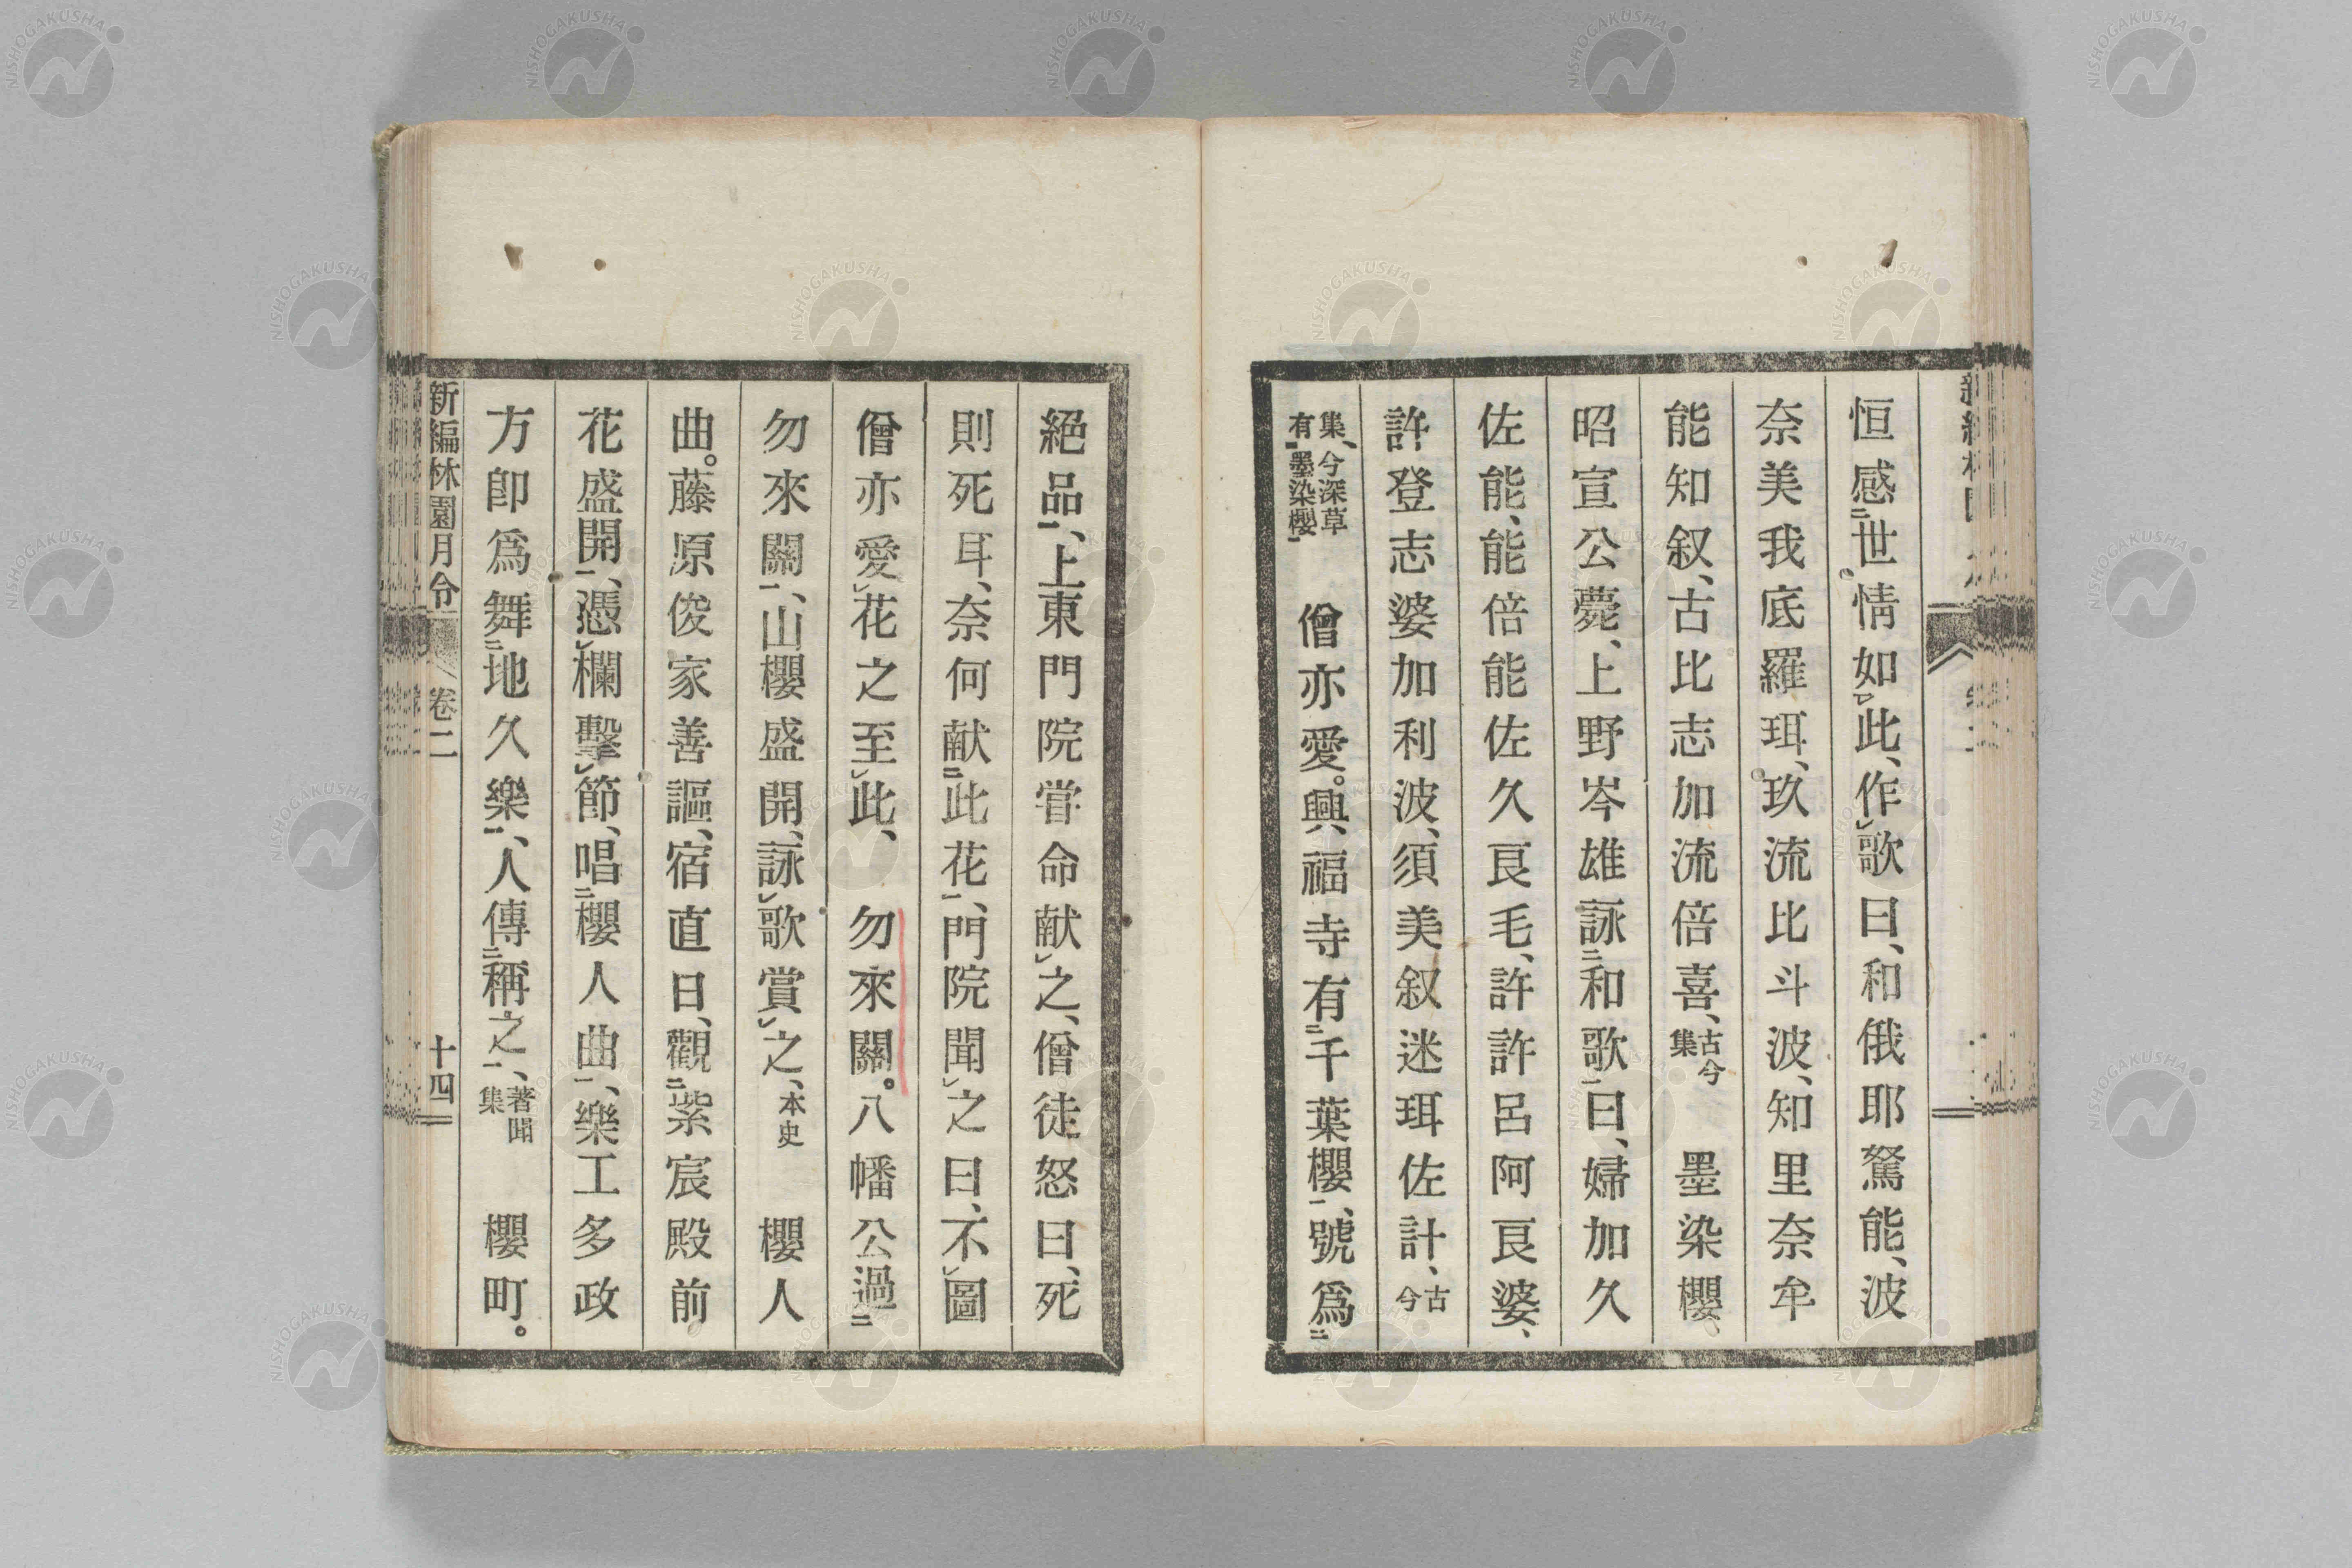 恒感二世情如レ此、作レ歌曰、和俄耶駑能、波
奈美我底羅珥、玖流比斗波、知里奈牟
能知叙、古比志加流倍喜、古今集 墨染櫻、
昭宣公薨、上野岑雄詠二和歌一曰、婦加久
佐能、能倍能佐久良毛、許許呂阿良婆、
許登志婆加利波、須美叙迷珥佐計、古今
集、今深草有二墨染櫻一 僧亦愛。興福寺有二千葉櫻一、號爲二
絕品一、上東門院嘗命献レ之、僧徒怒曰、死
則死耳、奈何献二此花一、門院聞レ之曰、不レ圖
僧亦愛レ花之至レ此、 勿來關。八幡公過二
勿來關一、山櫻盛開、詠レ歌賞レ之、本史 櫻人
曲。藤原俊家善謳、宿直日、觀二紫宸殿前
花盛開一、憑レ欄擊レ節、唱二櫻人曲一、樂工多政
方卽爲舞二地久樂一、人傳二稱之一、著聞集 櫻町。
新編林園月令 卷二 十四
NISHOGAKUSHA